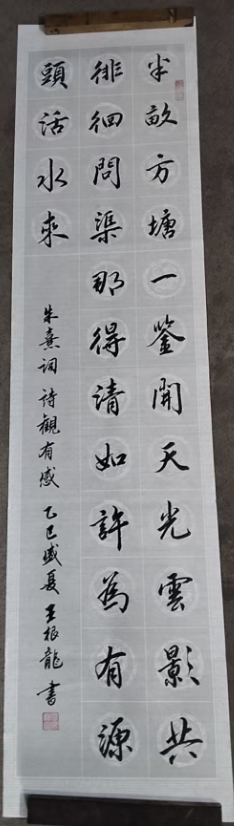 半畝方塘一鉴開天光雲影共
徘徊問渠那得請如許為有源
頭活水來
朱熹词 詩觀有感 乙巳盛夏 王根龍書